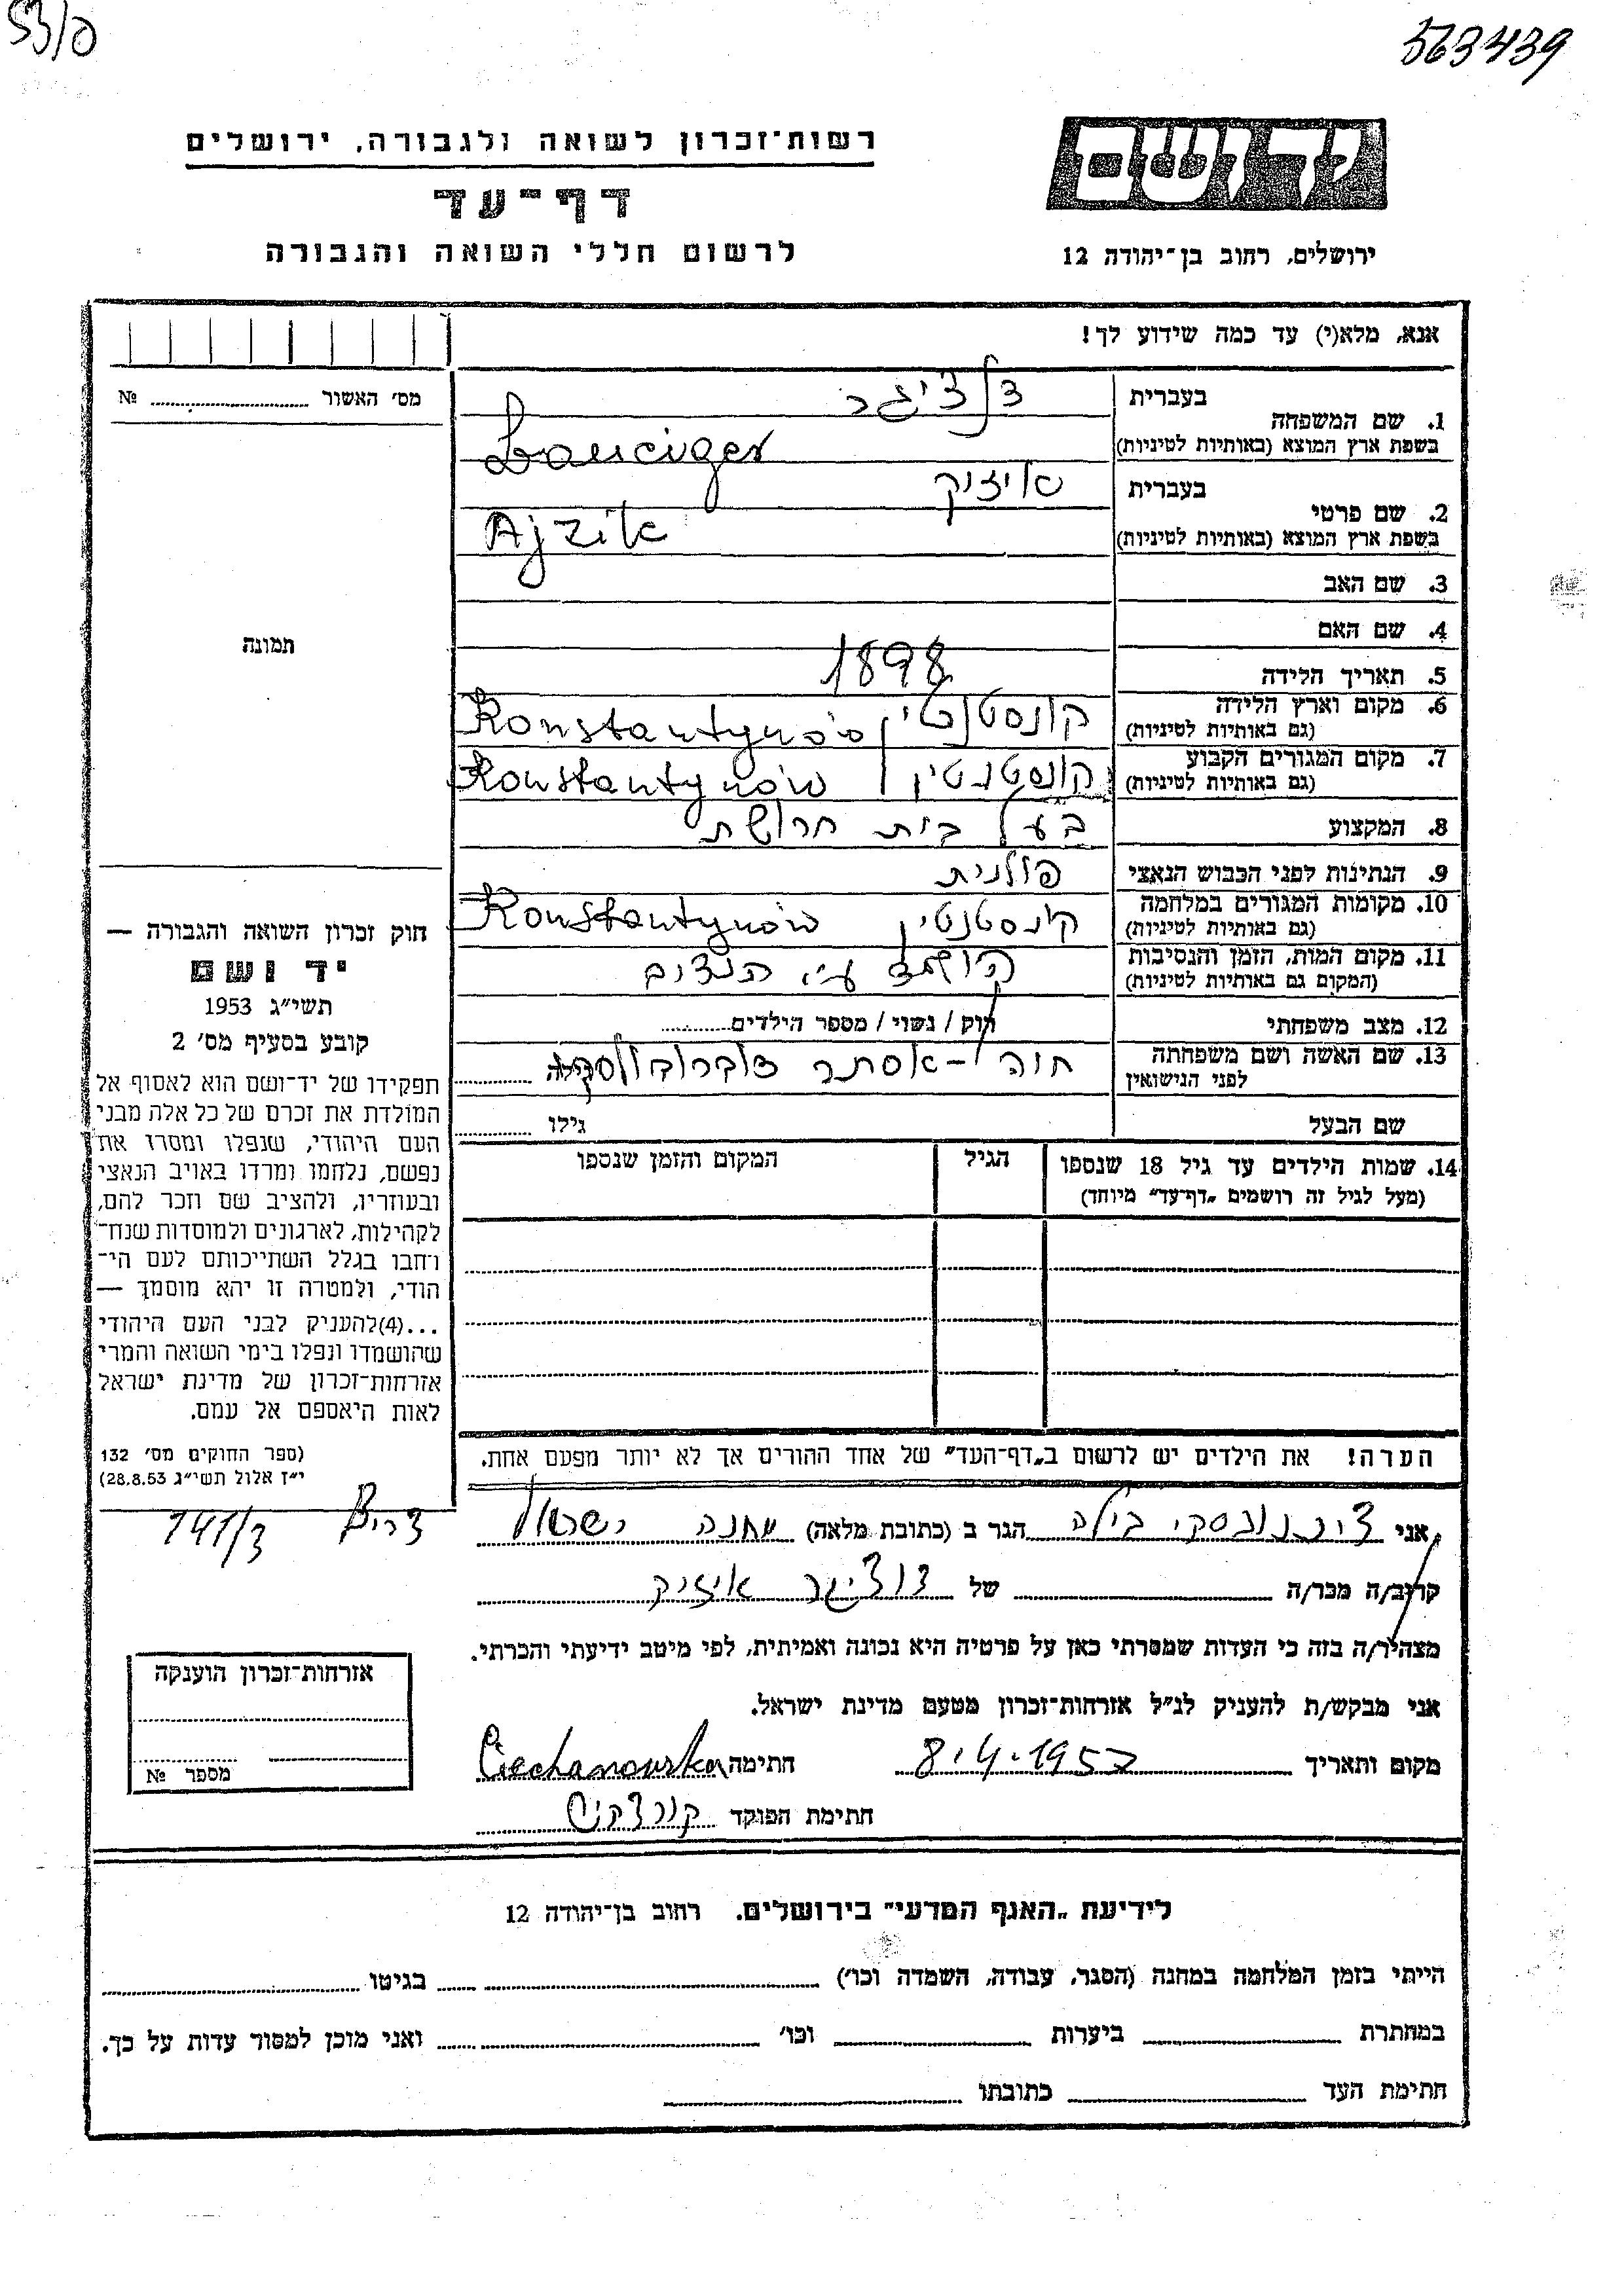 53/0
563439
רשות־זכרון לשואה ולגבורה, ירושלים
דף־עד
לרשום חללי השואה והגבורה
יד ושם
ירושלים, רחוב בן־יהודה 12
אנא, מלא(י) עד כמה שידוע לך!
מס׳ האשור № 
1. שם המשפחה
בעברית
בשפת ארץ המוצא (באותיות לטיניות)
2. שם פרטי
בעברית איזיק
בשפת ארץ המוצא (באותיות לטיניות) Ajzik
3. שם האב
4. שם האם
5. תאריך הלידה 1898
6. מקום וארץ הלידה
(גם באותיות לטיניות) קונסטנטין Konstantynów
7. מקום המגורים הקבוע
(גם באותיות לטיניות) קונסטנטין Konstantynów
8. המקצוע בעל בית חרושת
9. הנתינות לפני הכבוש הנאצי פולנית
10. מקומות המגורים במלחמה
(גם באותיות לטיניות) קונסטנטין Konstantynów
11. מקום המות, הזמן והנסיבות
(המקום גם באותיות לטיניות) ע״י הנצים
12. מצב משפחתי רוק / נשוי / מספר הילדים
13. שם האשה ושם משפחתה
לפני הנישואין חוה־אסתר גילה
שם הבעל גילו
14. שמות הילדים עד גיל 18 שנספו
(מעל לגיל זה רושמים „דף־עד״ מיוחד)
הגיל
המקום והזמן שנספו
הערה! את הילדים יש לרשום ב„דף־העד״ של אחד ההורים אך לא יותר מפעם אחת.
תמונה
חוק זכרון השואה והגבורה —
יד ושם
תשי״ג 1953
קובע בסעיף מס׳ 2
תפקידו של יד־ושם הוא לאסוף אל
המולדת את זכרם של כל אלה מבני
העם היהודי, שנפלו ומסרו את
נפשם, נלחמו ומרדו באויב הנאצי
ובעוזריו, ולהציב שם וזכר להם,
לקהילות, לארגונים ולמוסדות שנח־
רחבו בגלל השתייכותם לעם הי־
הודי, ולמטרה זו יהא מוסמך —
...(4)להעניק לבני העם היהודי
שהושמדו ונפלו בימי השואה והמרי
אזרחות־זכרון של מדינת ישראל
לאות היאספם אל עמם.
(ספר החוקים מס׳ 132
י״ז אלול תשי״ג 28.8.53)
אני צינוסקי בילה הגר ב (כתובת מלאה) מחנה ישראל צריף 141/3
קרוב/ה מכר/ה של איזיק
מצהיר/ה בזה כי העדות שמסרתי כאן על פרטיה היא נכונה ואמיתית, לפי מיטב ידיעתי והכרתי.
אני מבקש/ת להעניק לנ״ל אזרחות־זכרון מטעם מדינת ישראל.
מקום ותאריך 8.4.1957 חתימה Ciechanowska
חתימת הפוקד
אזרחות־זכרון הוענקה
מספר №
לידיעת „האגף המדעי״ בירושלים. רחוב בן־יהודה 12
הייתי בזמן המלחמה במחנה (הסגר, עבודה, השמדה וכו׳) בגיטו
במחתרת ביערות וכו׳ ואני מוכן למסור עדות על כך.
חתימת העד כתובתו